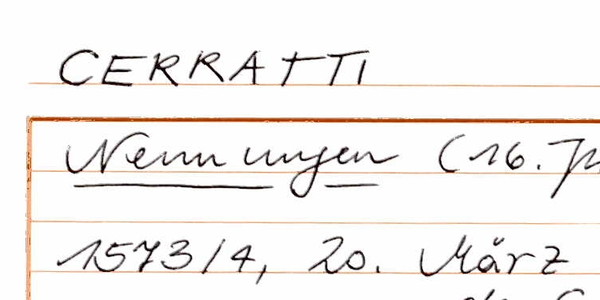 CERRATTI
Nennungen (16.
1573/4, 20. März